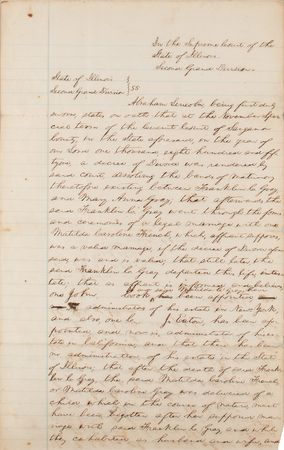 In the Supreme Court of the
State of Illinois
Second Grand Division
State of Illinois
Second Grand Division } SS
Abraham Lincoln being first duly
sworn, states on oath that at the November Spe-
cial term of the Circuit Court of Sangamon
County in the State aforesaid, in the year of
our Lord one thousand eight hundred and fifty
, a decree of Divorce was rendered by
said court, dissolving the bonds of matrimony
theretofore existing between Franklin C. Gray
and Mary Anna Gray; that afterwards the
said Franklin C. Gray went through the forms
and ceremonies of a legal marriage with one
Matilda Caroline French, which, affiant supposes,
was a valid marriage, if the decree of Divorce afore-
said was and is valid; that still later the
said Franklin C. Gray departed this life, intes-
tate; that as affiant is informed and believes,
one John Cook, has been appointed
administrator of his estate in New York
and also one J. Eaton, has been ap-
pointed and now is administrator of his es-
tate in California, and that there has been
no administration of his estate in the State
of Illinois; that after the death of said Frank-
lin C. Gray, the said Matilda Caroline French,
or Matilda Caroline Gray was delivered of a
child which in the course of nature must
have been begotten after her supposed mar-
riage with said Franklin C. Gray and while
they cohabited as husband and wife, and